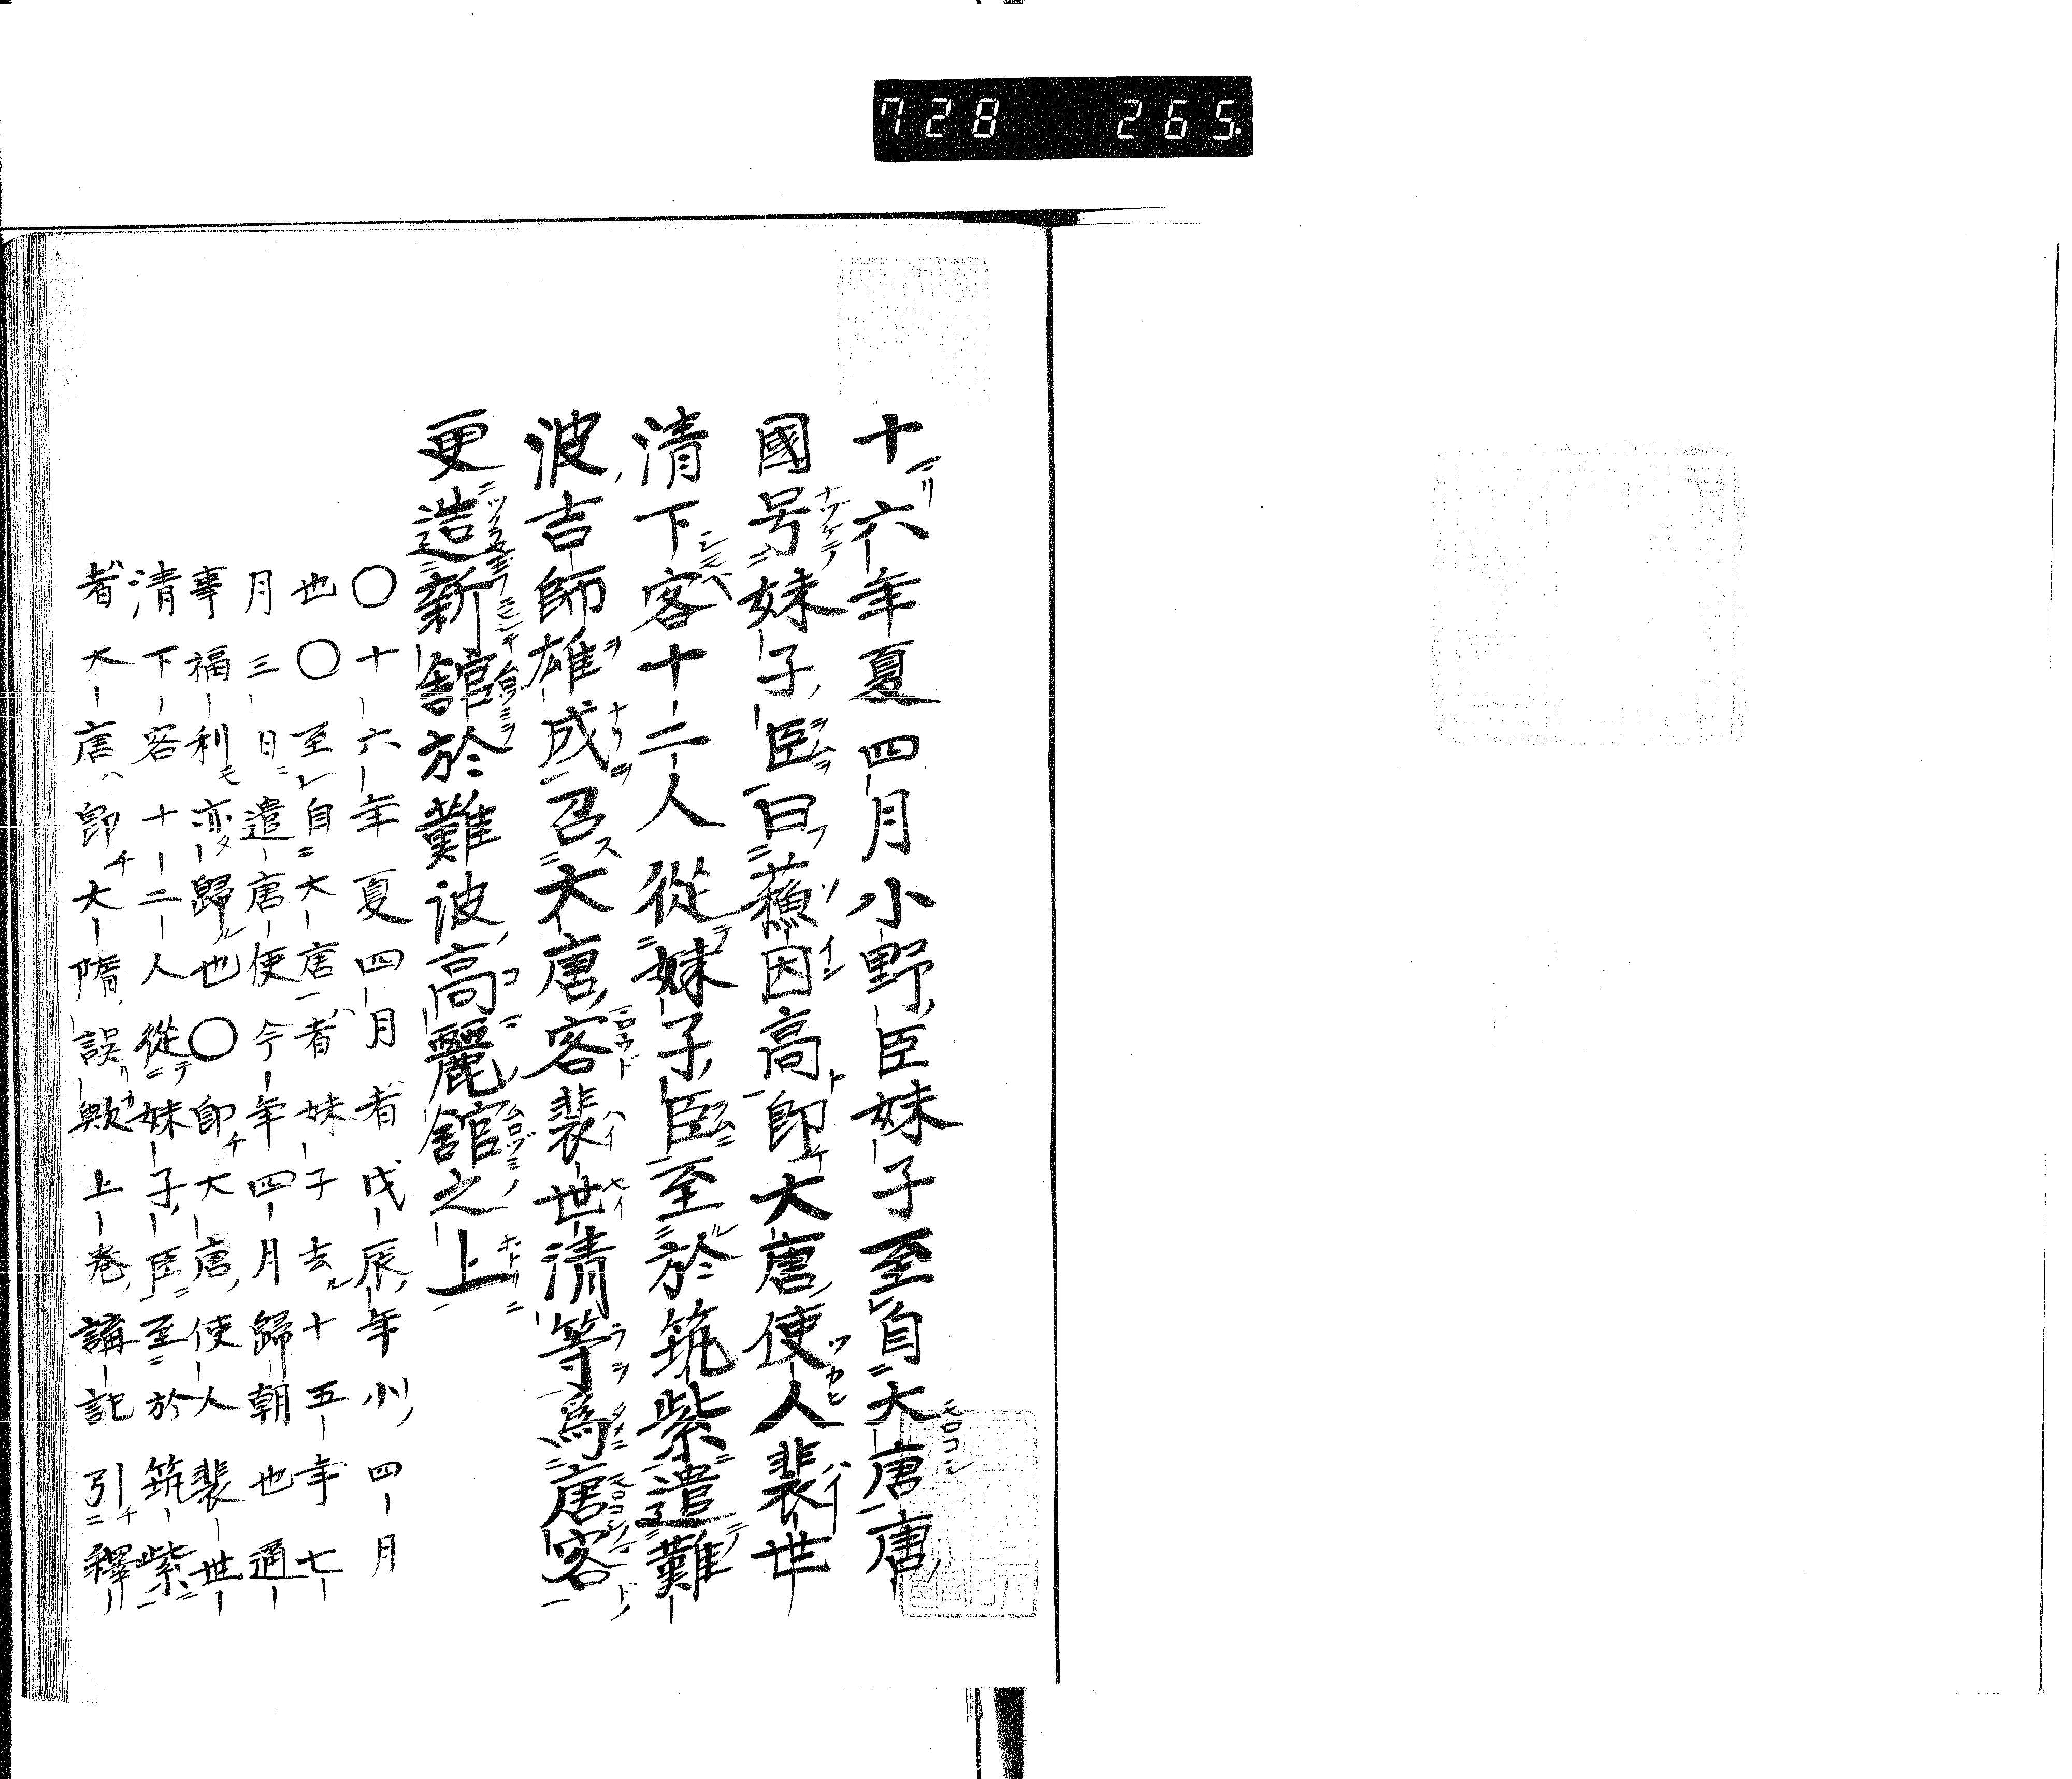 728 265
十六年夏四月小野臣妹子至自大唐唐
國号妹子臣曰蘓因高即大唐使人裴世
清下客十二人從妹子臣至於筑紫遣難
波吉師雄成召大唐客裴世清等爲唐客
更造新舘於難波高麗舘之上
〇十六年夏四月者戊辰年小四月
也〇至自大唐者妹子去十五年七
月三日遣唐使今年四月歸朝也通
事福利亦歸也〇即大唐使人裴世
清下客十二人從妹子臣至於筑紫
者大唐即大隋誤歟上巻講記引釋